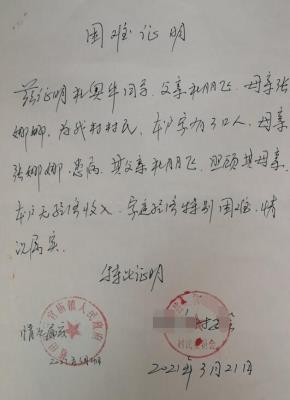 困难证明
兹证明杜奥华同学、父亲杜朋飞、母亲张
娜娜,为我村村民,本户家有3口人,母亲
张娜娜,患病,其父亲杜朋飞,照顾其母亲,
本户无经济收入,家庭经济特别困难,情
况属实.
特此证明
官庙镇人民政府
情况属实
村民委员会
2021年3月21日